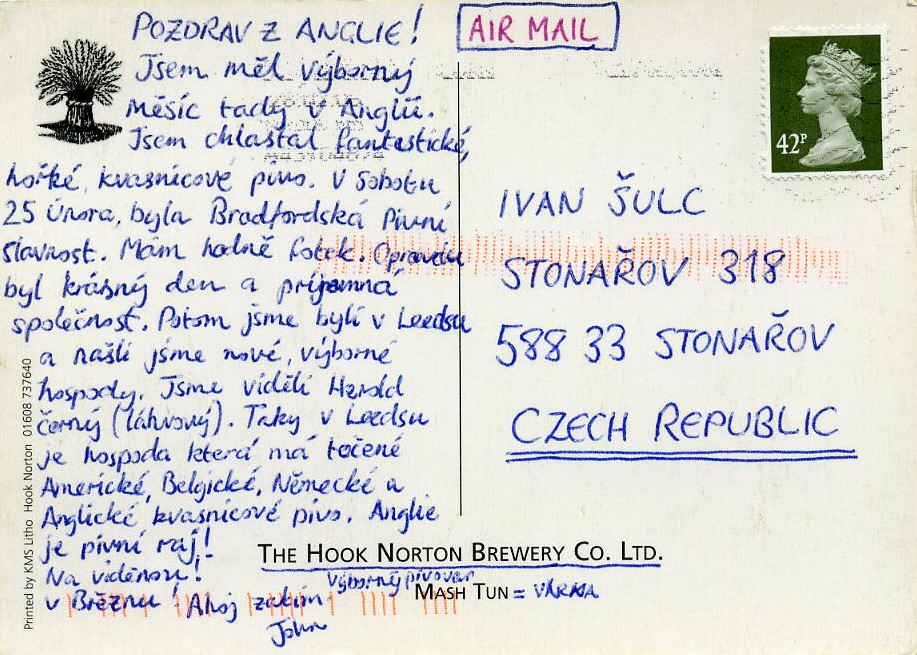 POZDRAV Z ANGLIE!
Jsem měl výborný
měsíc tady v Anglii.
Jsem chlastal fantastické,
hořké, kvasnicové pivo. V Sobotu
25 Února, byla Bradfordská Pivní
slavnost. Mám hodně fotek. Opravdu
byl krásný den a príjemná
společnost. Potom jsme byli v Leedsu
a našli jsme nové, výborné
hospody. Jsme viděli Herold
černý (láhvový). Taky v Leedsu
je hospoda která má točené
Americké, Belgické, Německé a
Anglické kvasnicové pivo. Anglie
je pivní ráj!
Na viděnou!
v Březnu! Ahoj zatím
John
AIR MAIL
42P
IVAN ŠULC
STONAŘOV 318
588 33 STONAŘOV
CZECH REPUBLIC
THE HOOK NORTON BREWERY CO. LTD.
Výborný pivovar
MASH TUN = VÁRKA
Printed by KMS Litho Hook Norton 01608 737640